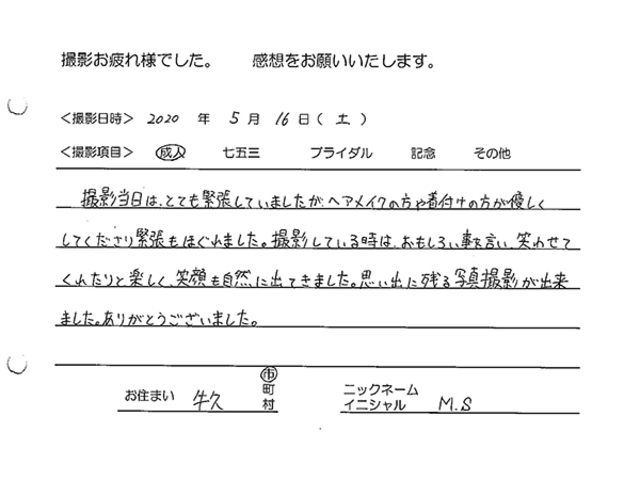 撮影お疲れ様でした。 感想をお願いいたします。
＜撮影日時＞ 2020 年 5 月 16 日（ 土 ）
＜撮影項目＞ 成人 七五三 ブライダル 記念 その他
撮影当日は、とても緊張していましたが、ヘアメイクの方や着付けの方が優しく
してくださり緊張もほぐれました。撮影している時は、おもしろい事を言い、笑わせて
くれたりと楽しく、笑顔も自然に出てきました。思い出に残る写真撮影が出来
ました。ありがとうございました。
お住まい 牛久 市 町 村
ニックネーム イニシャル M.S